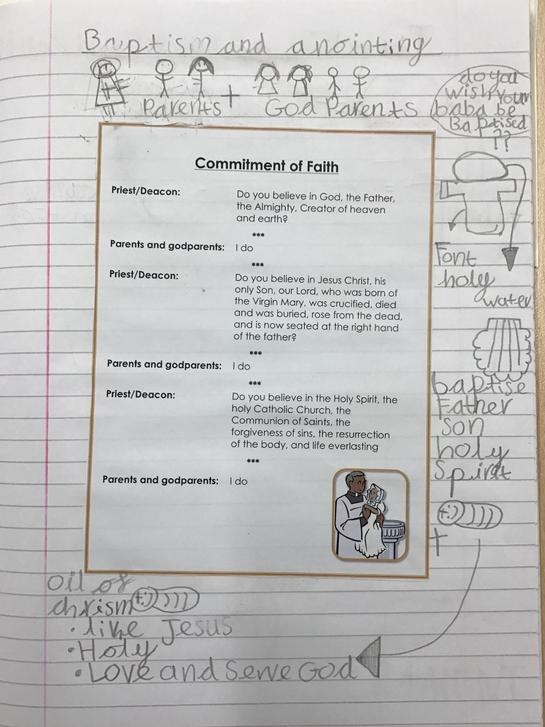 Baptism and anointing
Parents + God Parents
do you
wish your
baba be
Baptised
??
Commitment of Faith
Priest/Deacon: Do you believe in God, the Father,
the Almighty, Creator of heaven
and earth?
***
Parents and godparents: I do
***
Priest/Deacon: Do you believe in Jesus Christ, his
only Son, our Lord, who was born of
the Virgin Mary, was crucified, died
and was buried, rose from the dead,
and is now seated at the right hand
of the father?
***
Parents and godparents: I do
***
Priest/Deacon: Do you believe in the Holy Spirit, the
holy Catholic Church, the
Communion of Saints, the
forgiveness of sins, the resurrection
of the body, and life everlasting
***
Parents and godparents: I do
Font
holy
water
baptise
Father
son
holy
Spirit
oil of
chrism
• like Jesus
• Holy
• Love and serve God